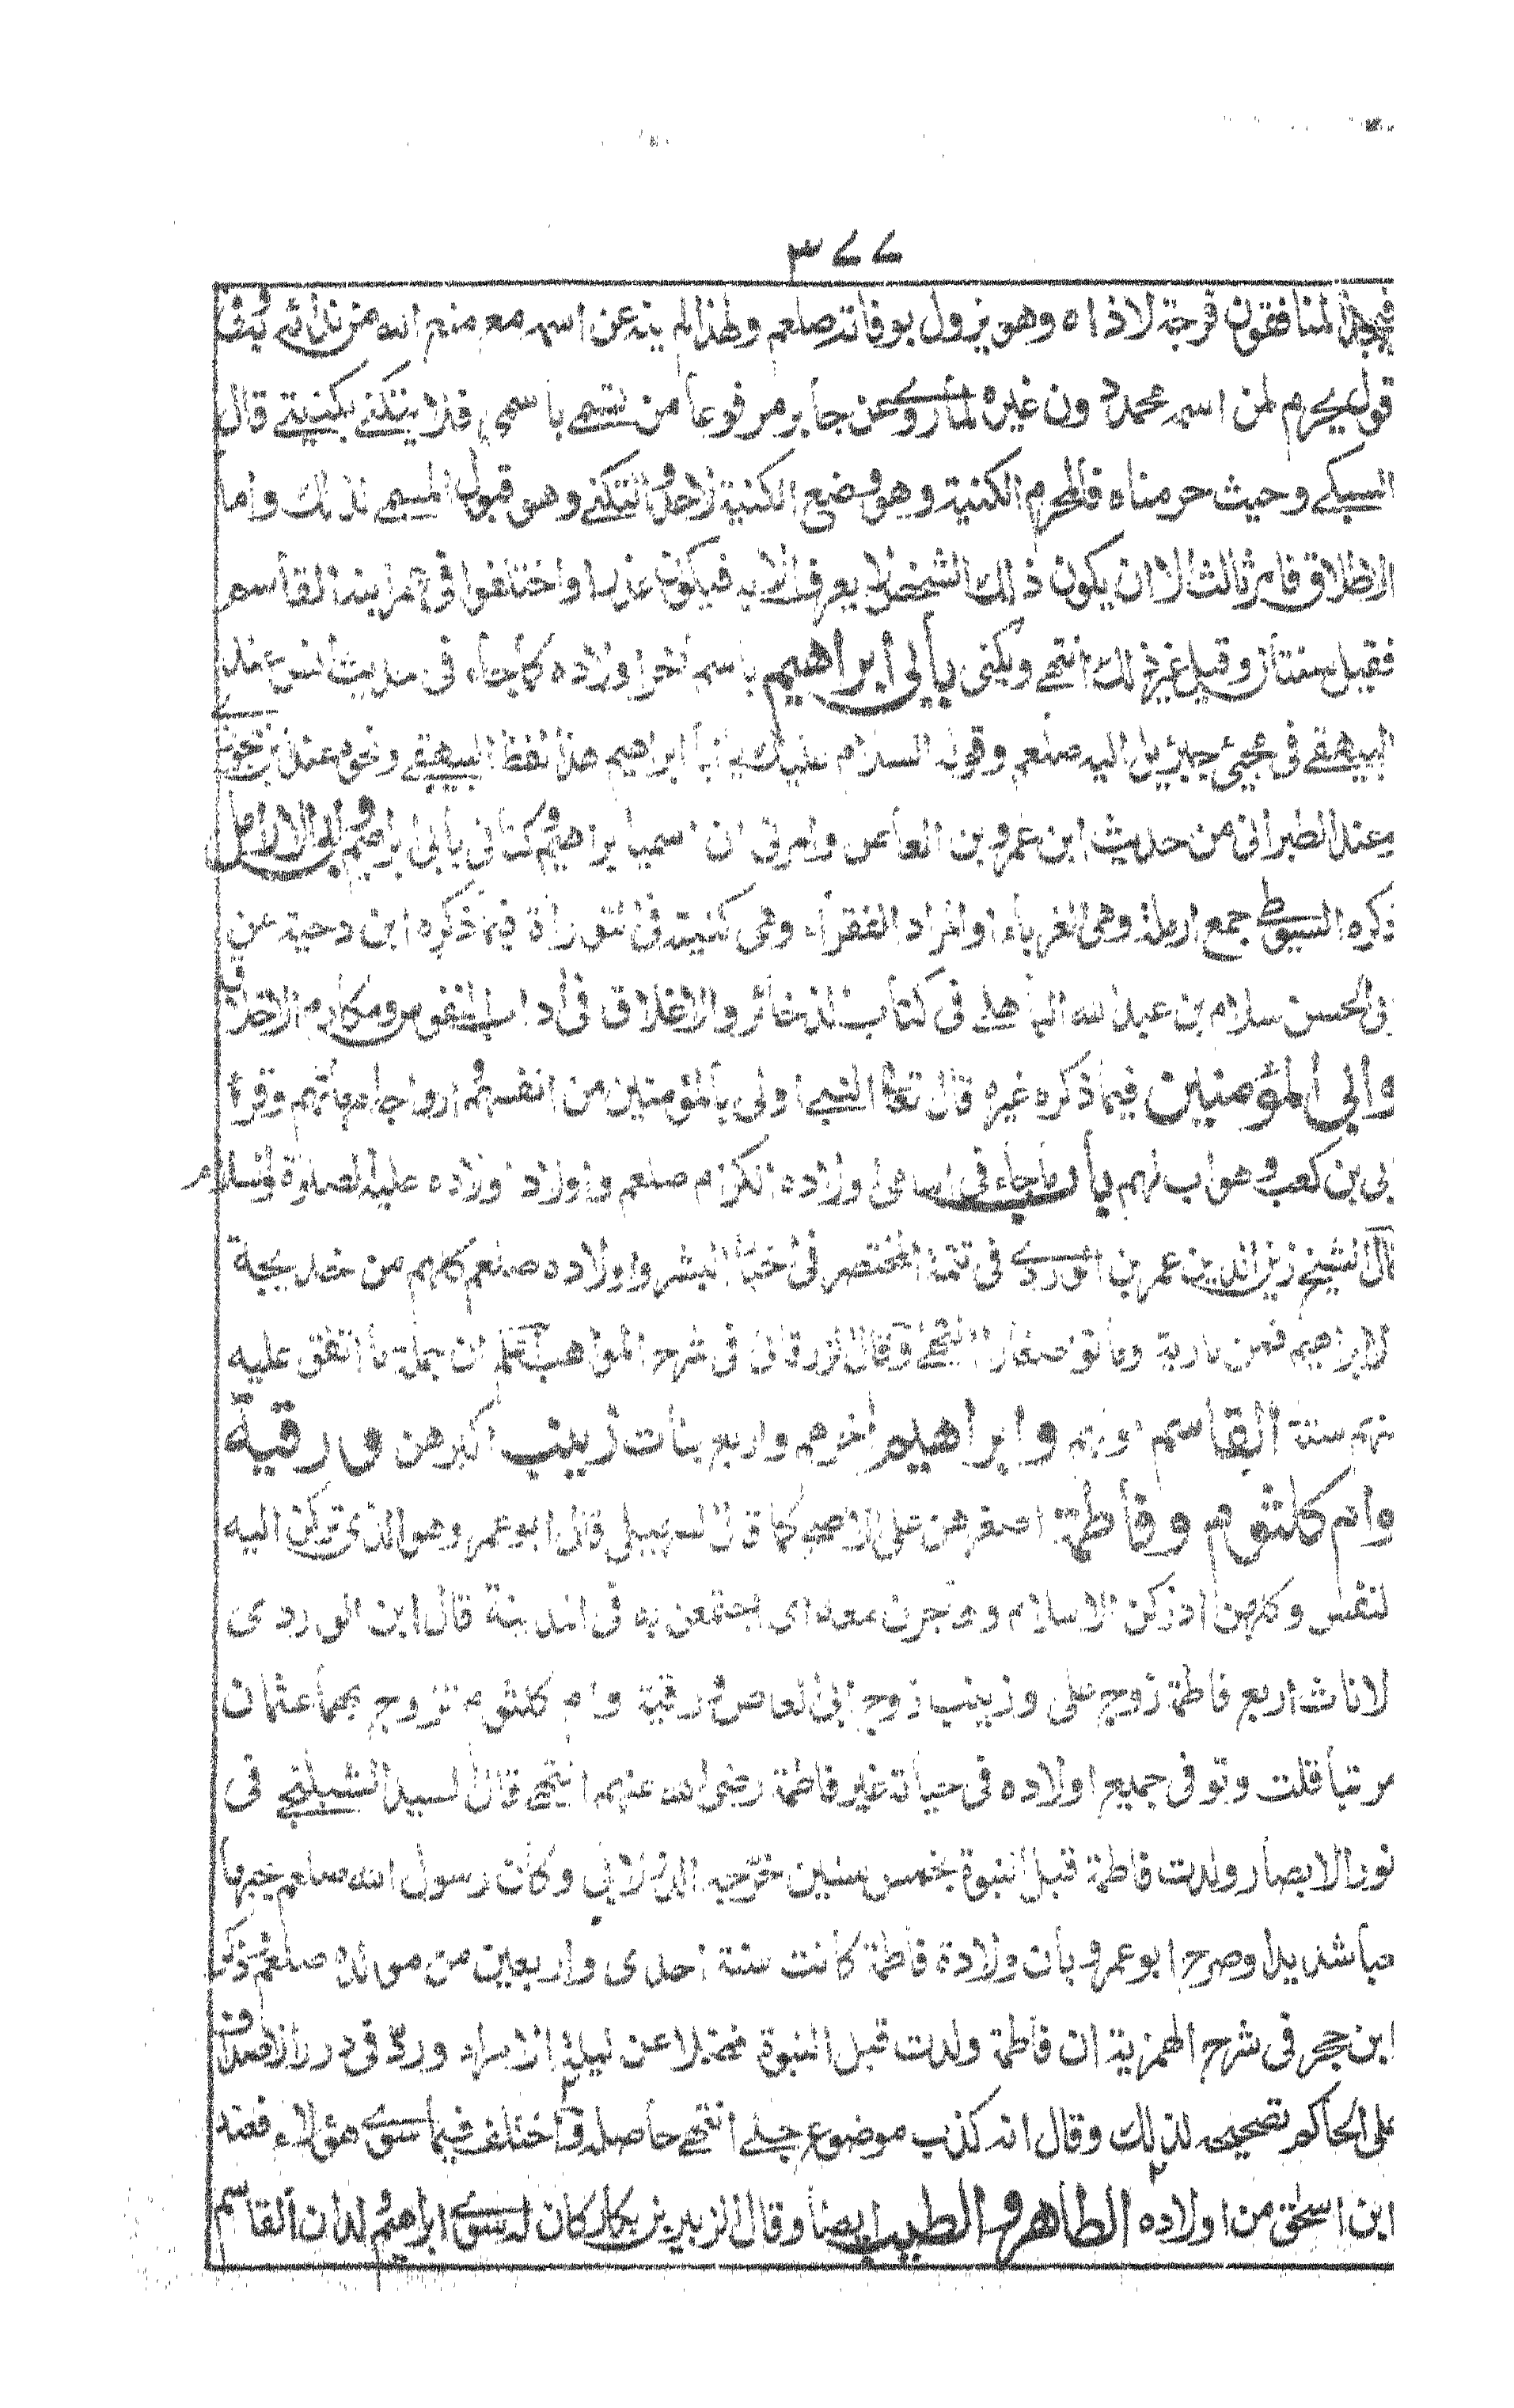 ٣٧٧
فيجد المنافقون فرجة لاذاه وهو يزول بوفاته صلعم ولهذا لم ينه عن اسمه مع
قول يحرم لمن اسمه محمد دون غيره لما روى عن جابر مرفوعا من تسمى باسمى فلا يتكنى بكنيتى قال
السبكى وحيث حرمناه فالمحرم الكنية وهو وضع الكنية لاحد والتكنى وهو قبول المسمى ذلك واما
الاطلاق فامر ثالث الا ان يكون ذلك الشخص لا يعرف الا به فيكون عذرا واختلفوا فى عمر ابنه القاسم
فقيل سنتان وقيل غير ذلك انتهى ويكنى بأبى ابراهيم باسم اخر اولاده كما جاء فى حديث انس عند
البيهقى فى مجئ جبرئيل اليه صلعم وقوله السلام عليك يا أبا ابراهيم هذا لفظ البيهقى ونحوه عند
وعند الطبرانى من حديث ابن عمرو بن العاص وامرنى ان اسميه ابراهيم وكنانى بأبى ابراهيم وابى الارامل
ذكره السيوطى جمع ارملة وهى الغرباء او المراد الفقراء وهى كنيته فى التوراة فيما ذكره ابن دحية عن
ابى الحسن سلام بن عبد الله الباهلى فى كتاب الذخائر والاعلاق فى أداب النفوس ومكارم الاخلاق
وابى المؤمنين فيما ذكره غيره قال تعالى النبى اولى بالمؤمنين من انفسهم وازواجه امهاتهم وقرأ
ابى بن كعب وهو اب لهم باب ما جاء فى اسامى اولاده الكرام صلعم واولاد اولاده عليه الصلوة والسلام
قال الشيخ زين الدين عمر بن الوردى فى تتمة المختصر فى أخبار البشر واولاده صلعم كلهم من خديجة
الا ابراهيم فمن مارية وماتوا صغارا انتهى وقال الزرقانى فى شرح المواهب اعلم ان جملة ما اتفق عليه
منهم ستة القاسم اولهم وابراهيم اخرهم واربع بنات زينب اكبرهن ورقية
وام كلثوم وفاطمة اصغرهن على الاصح كما قال السهيلى قال ابو عمر وهو الذى تركن اليه
لنفس وكلهن ادركن الاسلام وهاجرن معه اى اجتمعن به فى المدينة قال ابن الوردى
الاناث اربع فاطمة زوج على وزينب زوج ابى العاص ورقية وام كلثوم تزوج بهما عثمان
مرتبا قلت وتوفى جميع اولاده فى حياته غير فاطمة رضى الله عنهم انتهى قال السيد الشبلنجى فى
نور الابصار ولدت فاطمة قبل النبوة بخمس سنين خرجه الدولابى وكان رسول الله صلعم يحبها
حبا شديدا وصرح ابو عمرو بان ولادة فاطمة كانت سنة احدى واربعين من مولده صلعم وذكر
ابن حجر فى شرح الهمزية ان فاطمة ولدت قبل النبوة فضلا عن ليلة الاسراء ورد فى درر الاصداف
على الحاكم تصحيحه لذلك وقال انه كذب موضوع جلى انتهى حاصله واختلف فيما سوى هؤلاء فعند
ابن اسحق من اولاده الطاهر والطيب ايضا وقال الزبير بن بكار كان له سوى ابراهيم ولدان القاسم